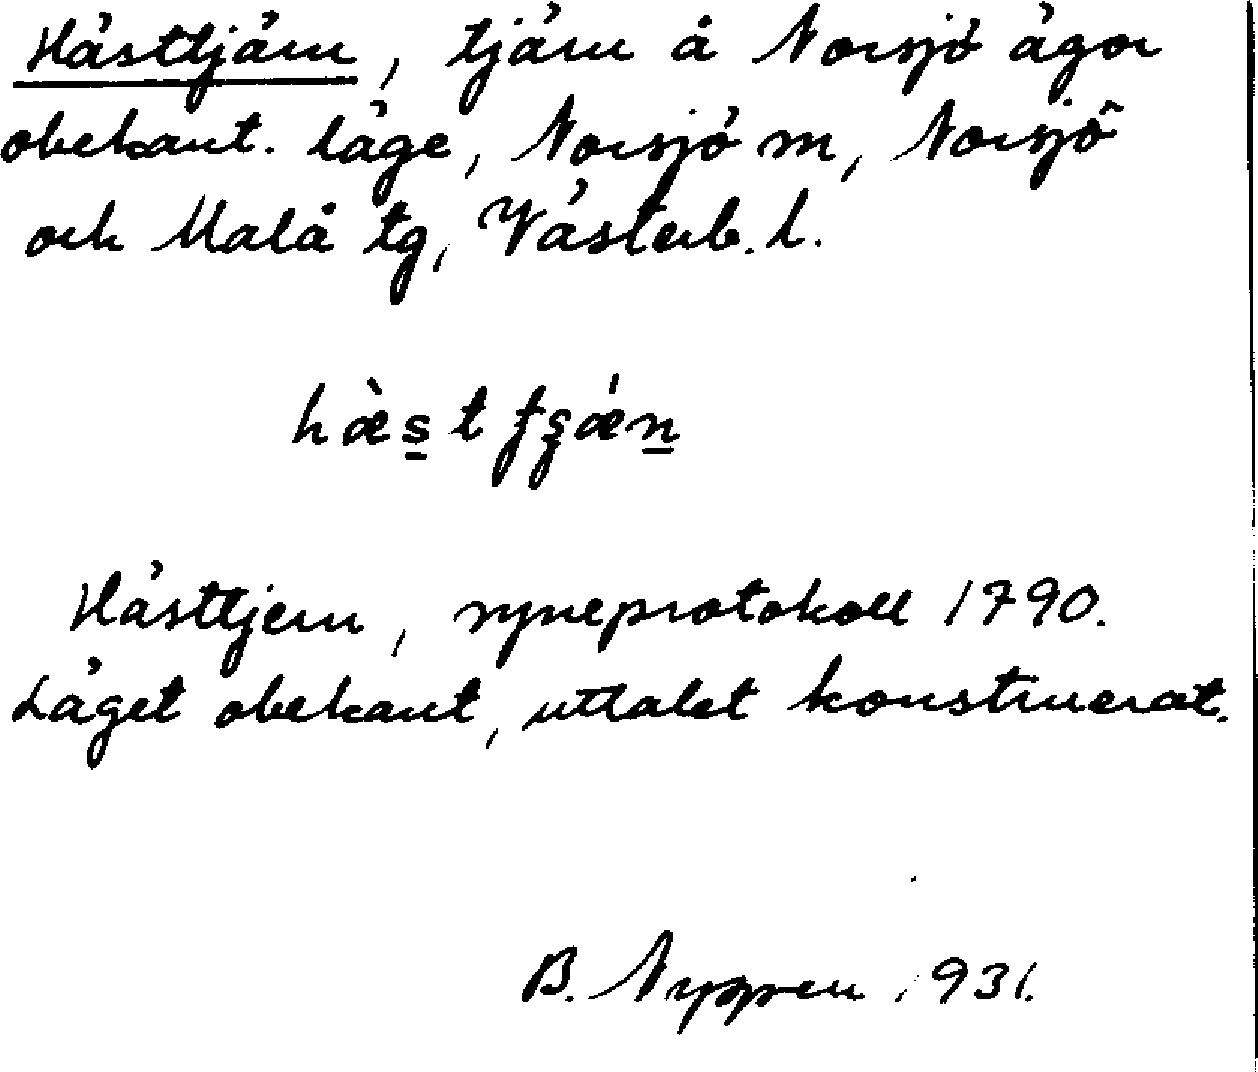 Hästtjärn, tjärn å Norsjö ägor
obekant. läge, Norsjö m, Norsjö
och Malå tg, Västerb. l.
Hästtjern, syneprotokoll 1790.
Läget obekant, uttalet konstruerat.
B. 1931.